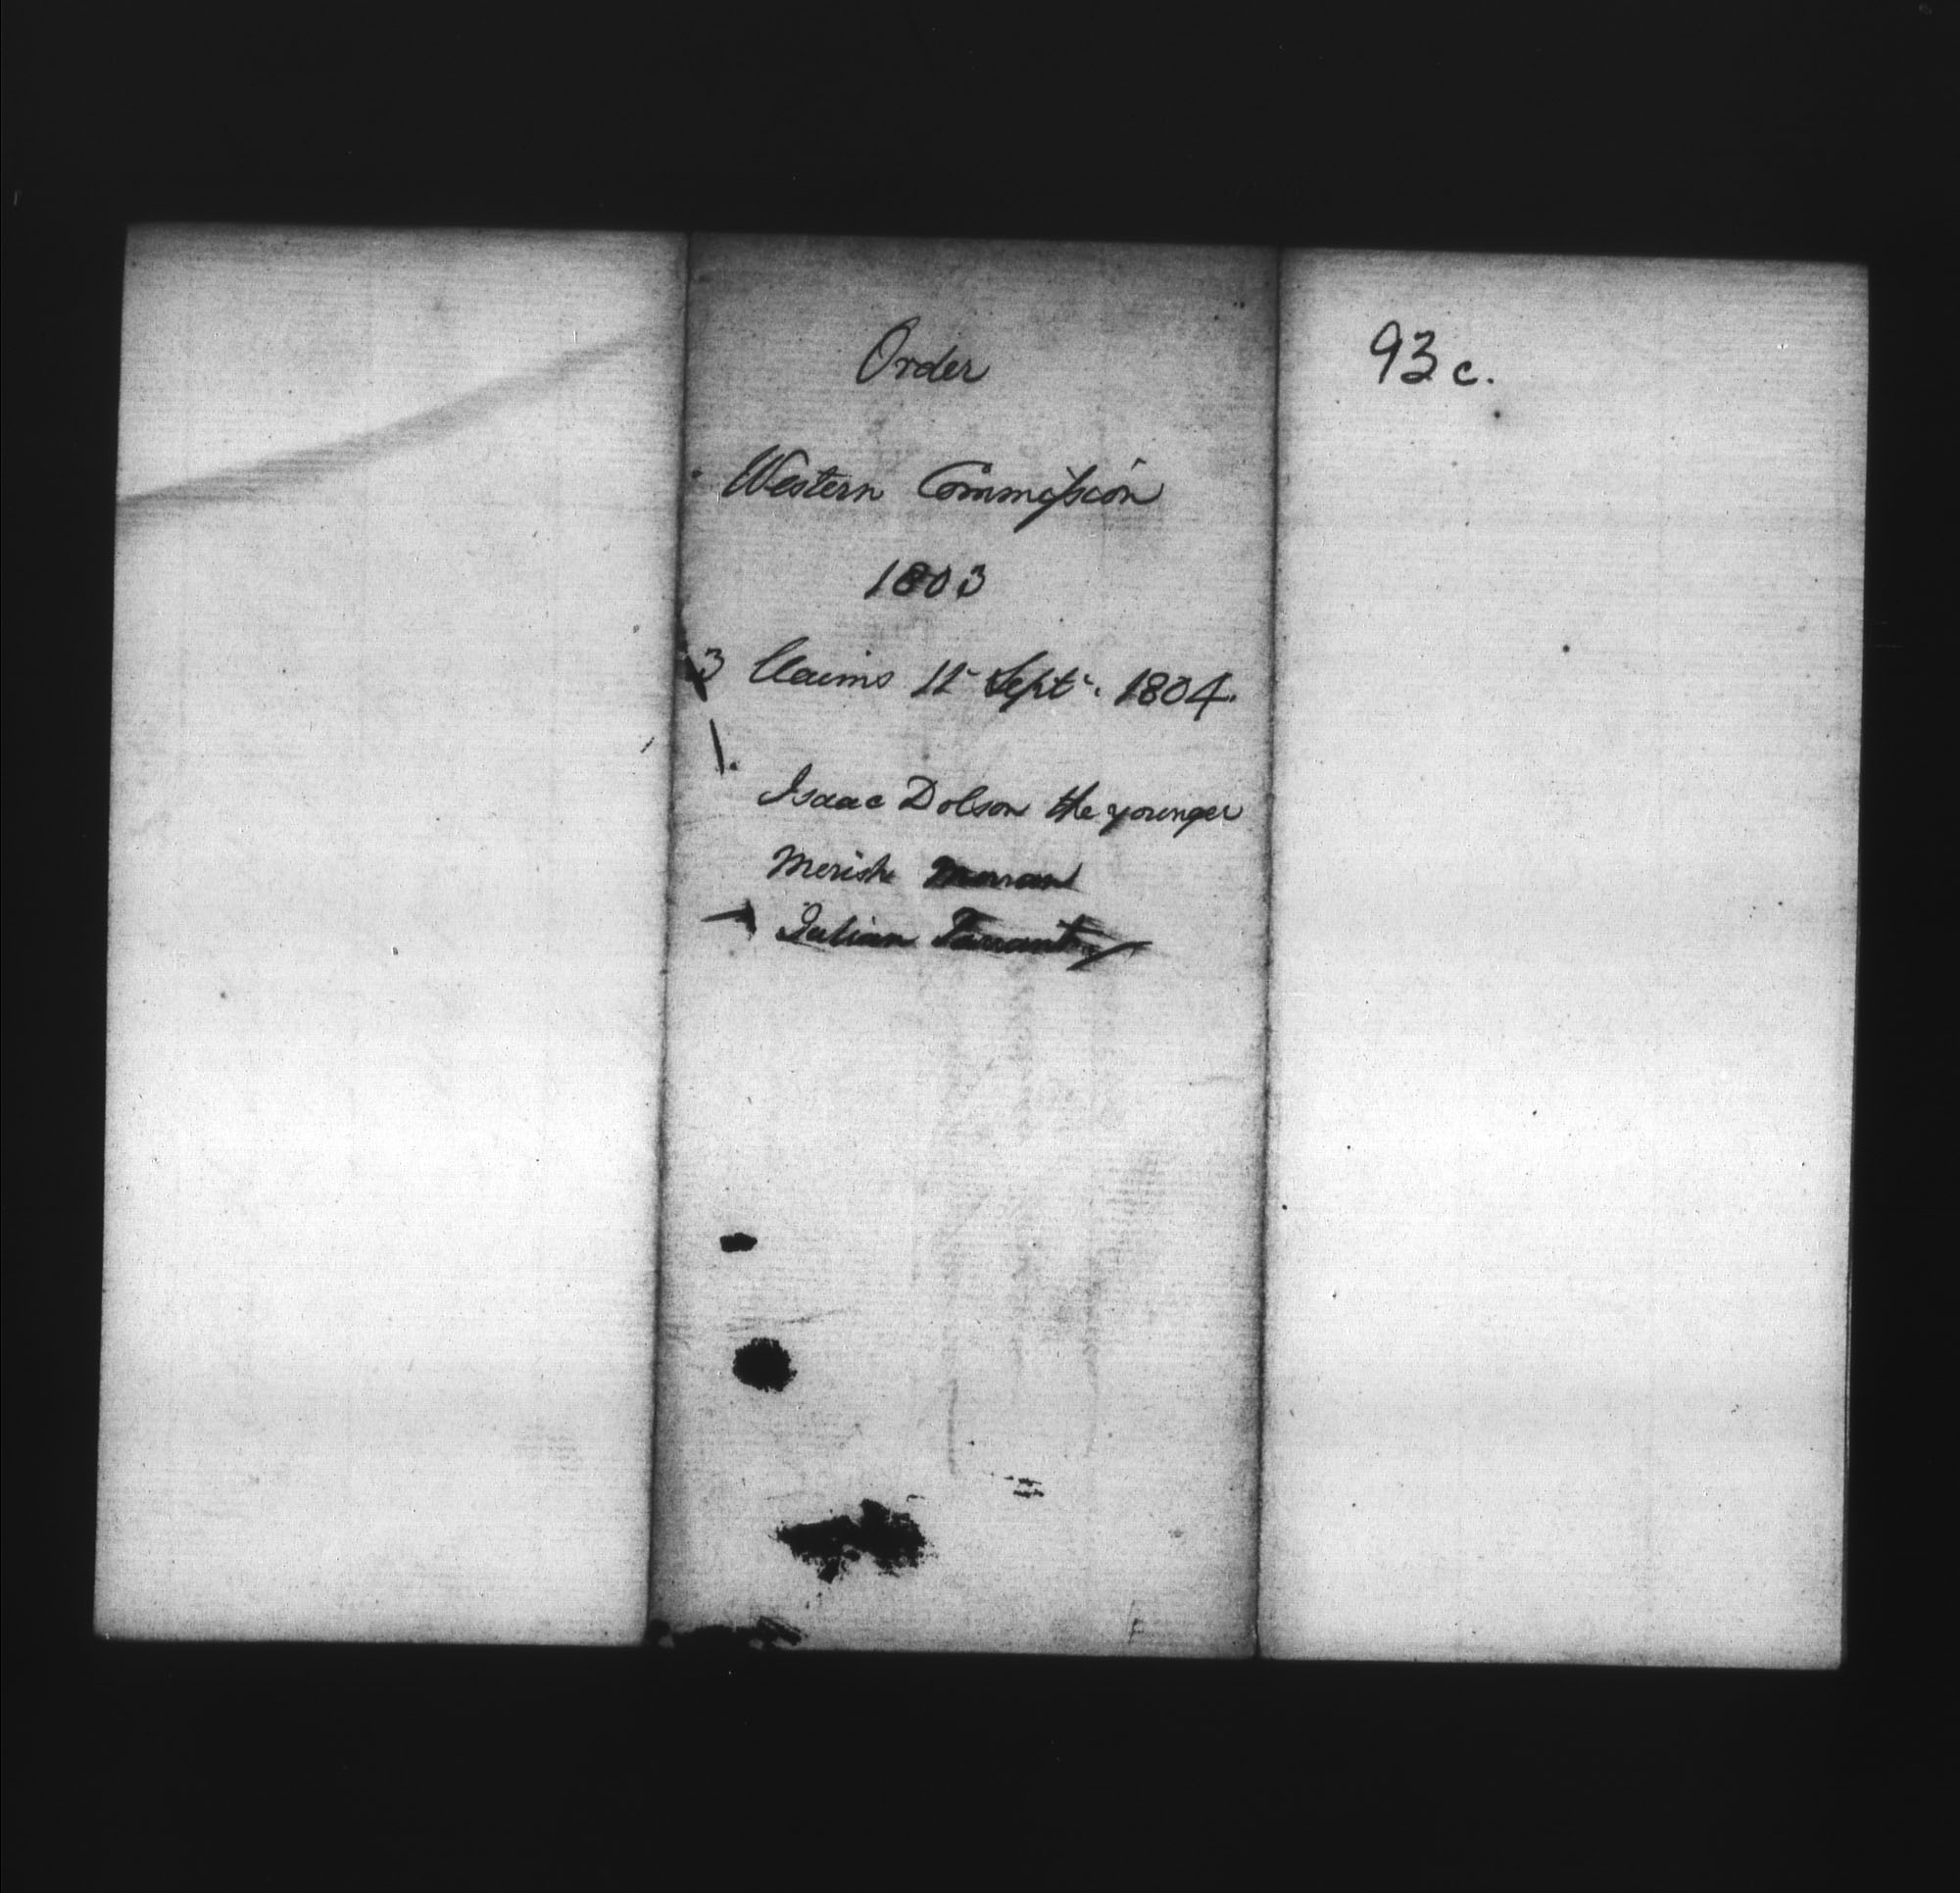 Order
Western Commission
1803
3 Claims 11 Septr. 1804.
1.
Isaac Dolson the younger
Merish Marran
Julian Tarrant
93 c.